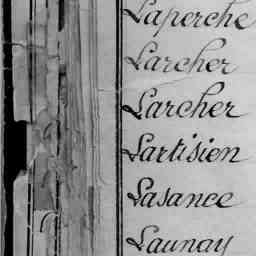 Laperche
Larcher
Larcher
Lartisien
Lasance
Launay